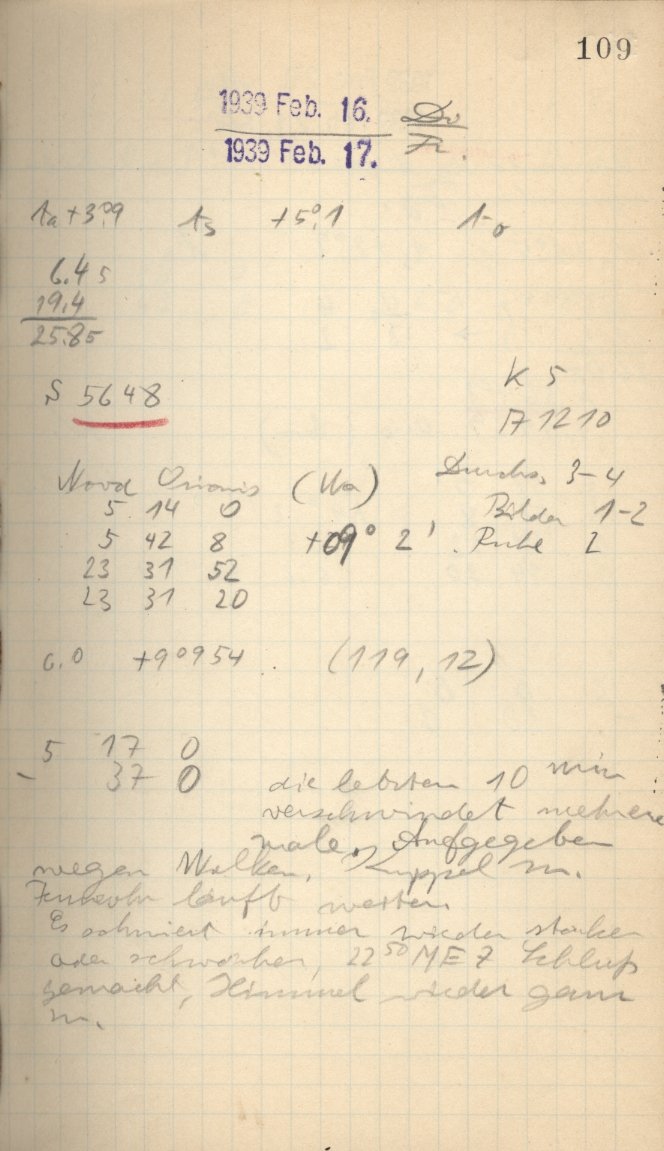 109
1939 Feb. 16. Do
1939 Feb. 17. Fr.
+3°9 +5°1
6.45
19.4
25.85
S 5648
K 5
17 12 10
Nova Orionis (Ua) Durchs. 3-4
5 14 0 Bilder 1-2
5 42 8 +09° 2' Ruhe 2
23 31 52
23 31 20
6.0 +9°954 (119, 12)
5 17 0
- 37 0 die letzten 10 min
verschwindet mehrere
male, Aufgegeben
wegen Wolken. Kuppel m.
Fernrohr läuft weiter.
Es schmiert immer wieder stärker
oder schwächer, 22 50 MEZ Schluß
gemacht, Himmel wieder ganz
m.